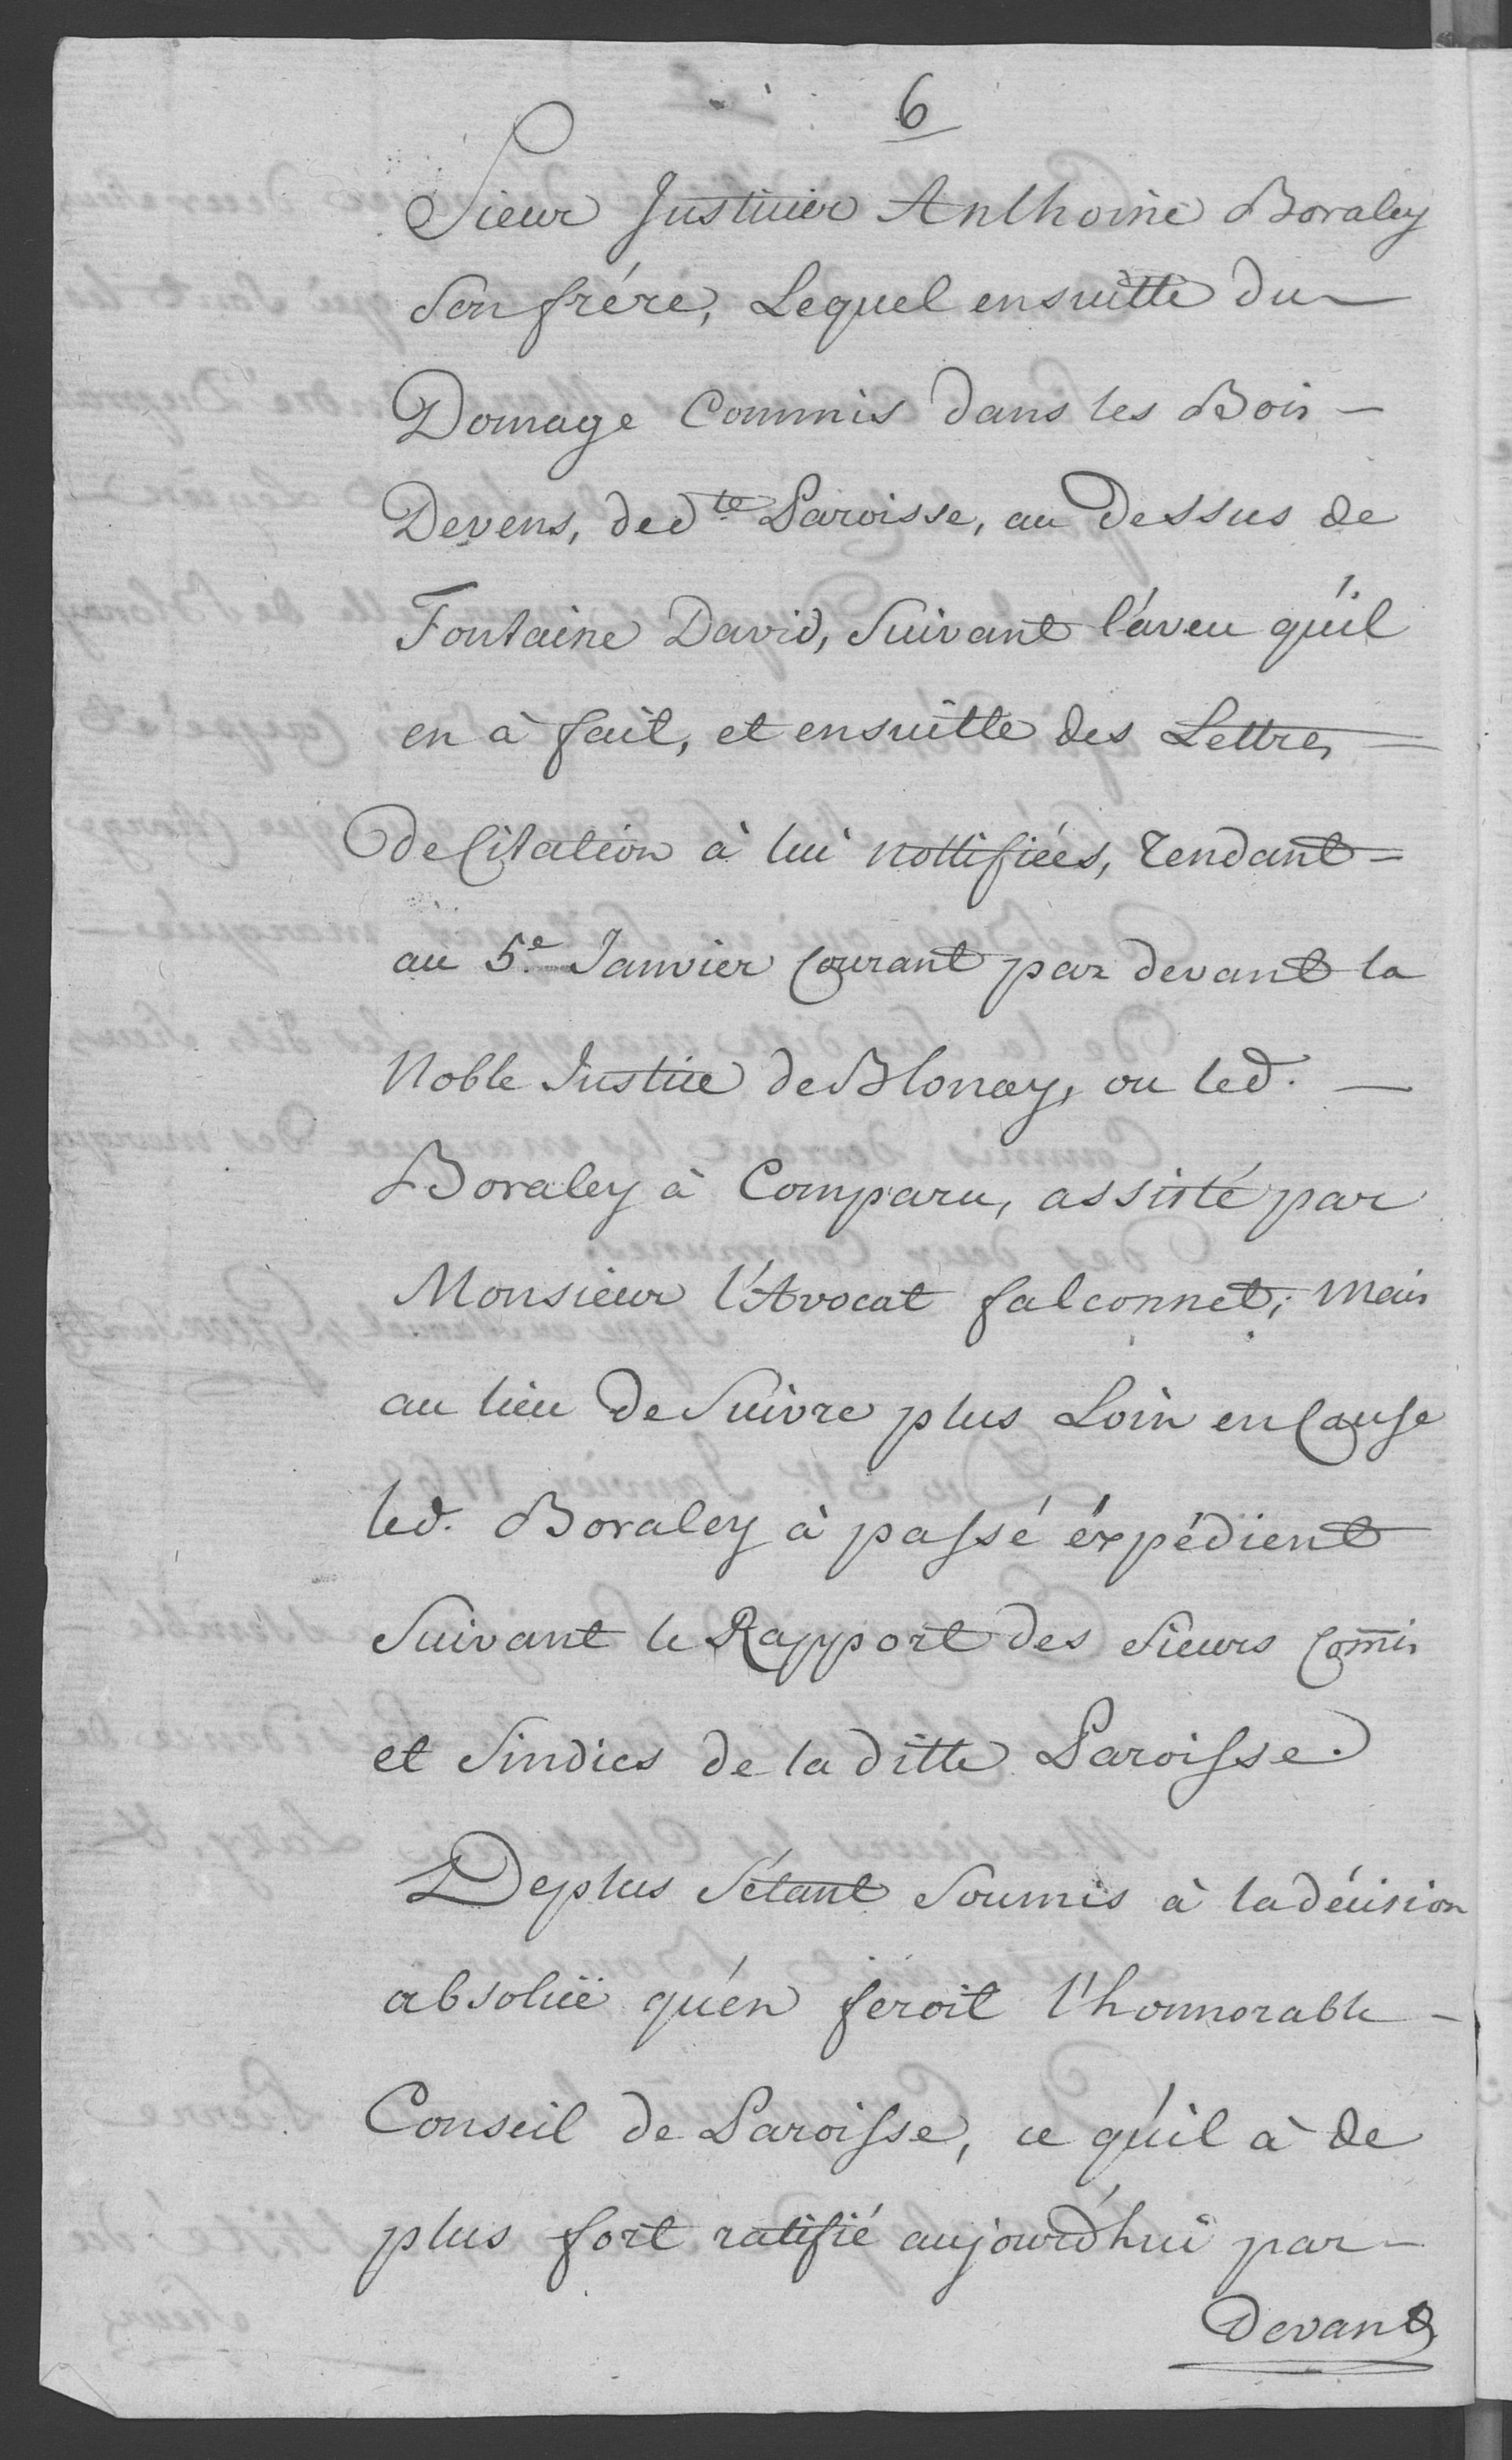 6
Sieur Justicier Anthoine Boraley
son frére, Lequel ensuitte du
Domage Commis dans les Bois
Devens, de d.te Paroisse, au Dessus de
Fontaine David, Suivant l'áveu qu'il
en à fait, et ensuitte des Lettres
de Citation à lui nottifiées, Tendant
au 5.e Janvier Courant par devant la
Noble Justice de Blonay, ou led.
Boraley à Comparu, assisté par
Monsieur l'Avocat falconnet; mais
au lieu de Suivre plus Loin en Cause
led. Boraley à passé éxpédient
Suivant le Rapport des Sieurs Com̄is
et Sindics de la ditte Paroisse.
De plus S'étant Soumis à la décision
absolüe qu'én feroit l'honnorable
Conseil de Paroisse, ce qu'il à de
plus fort ratifié aujourd'hui par
Devant